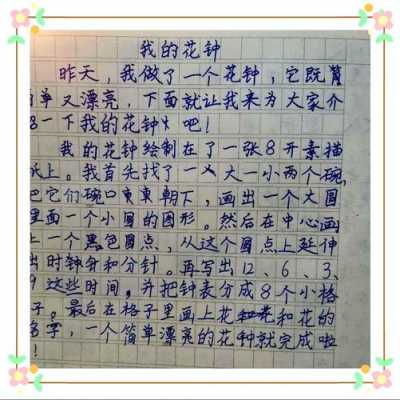 我的花钟
昨天，我做了一个花钟，它既简
单又漂亮，下面就让我来为大家介
一下我的花钟吧！
我的花钟绘制在了一张8开素描
纸上。我首先找了一大一小两个碗，
把它们碗口朝下，画出一个大圆
里面一个小圆的图形。然后在中心画
上一个黑色圆点，从这个圆点上延伸
出时钟针和分针。再写出12、6、3、
9这些时间，并把钟表分成8个小格
子。最后在格子里画上花和花的
名字，一个简单漂亮的花钟就完成啦
！